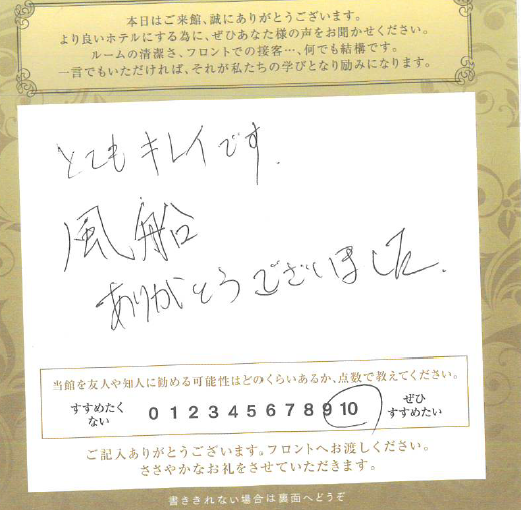 本日はご来館、誠にありがとうございます。
より良いホテルにする為に、ぜひあなた様の声をお聞かせください。
ルームの清潔さ、フロントでの接客…、何でも結構です。
一言でもいただければ、それが私たちの学びとなり励みになります。
とてもキレイです.
風船
ありがとうございました.
当館を友人や知人に勧める可能性はどのくらいあるか、点数で教えてください。
すすめたく
ない
0 1 2 3 4 5 6 7 8 9 10
ぜひ
すすめたい
ご記入ありがとうございます。フロントへお渡しください。
ささやかなお礼をさせていただきます。
書ききれない場合は裏面へどうぞ